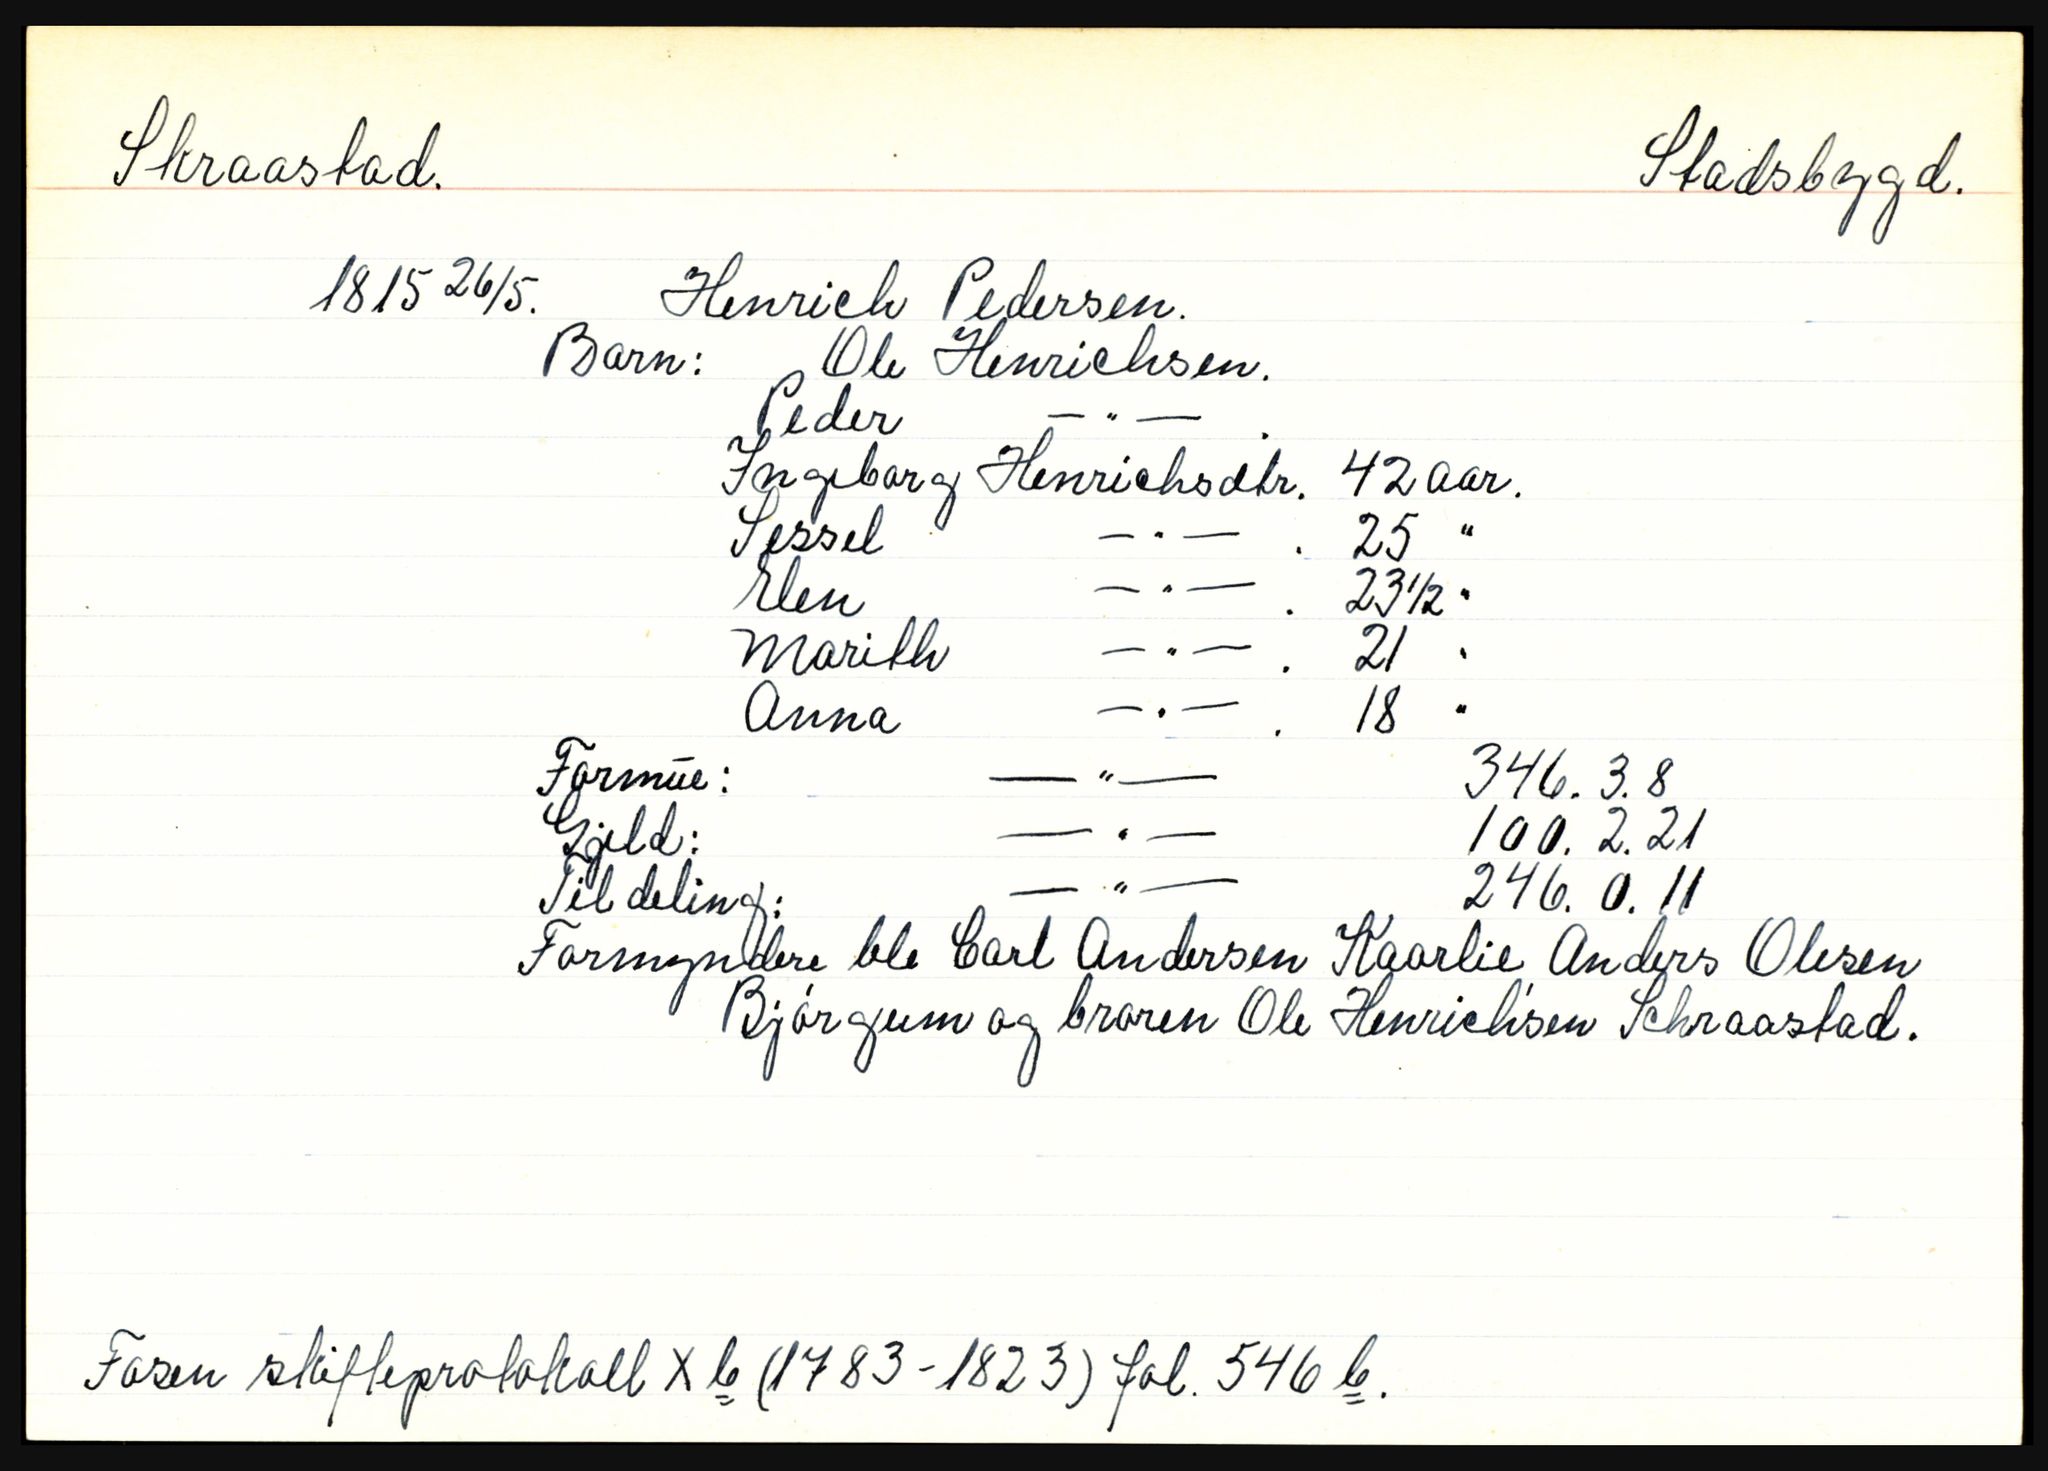 Skraastad. Stadsbygd.
1815 26/5. Henrich Pedersen.
Barn: Ole Henrichsen.
Peder — " — .
Ingeborg Henrichsdtr. 42 aar.
Sessel — " — . 25 "
Elen — " — . 23 1/2 "
Marith — " — . 21 "
Anna — " — . 18 "
Formue: — " — 346. 3. 8
Gjeld: — " — 100. 2. 21
Til deling: — " — 246. 0. 11
Formyndere ble Carl Andersen Kaarlie Anders Olesen
Bjørgum og broren Ole Henrichsen Schraastad.
Fosen skifteprotokoll X b (1783-1823) fol. 546 b.